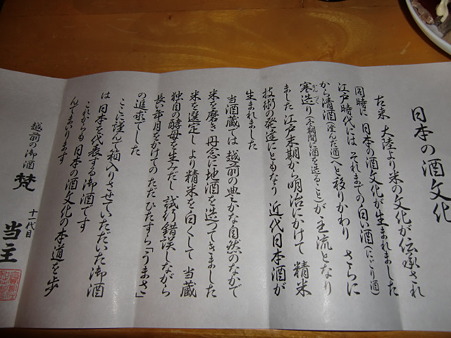 日本の酒文化
古来 大陸より米の文化が伝承され
同時に 日本の酒文化が生まれました
江戸時代には それまでの白い酒(にごり酒)
から清酒(澄んだ酒)へと移りかわり さらに
寒造り(冬期間に酒を造ること)が主流となり
ました 江戸末期から明治にかけて 精米
技術の発達にともない 近代日本酒が
生まれました
当酒蔵では 越前の豊かな自然のなかで
米を磨き 丹念に地酒を造ってきました
米を選定し より精米を白くして 当蔵
独自の酵母を生みだし 試行錯誤しながら
長い年月をかけ のただひたすら「うまさ」
の追求でした
ここに謹んで箱入りさせていただいた御酒
は 日本を代表する御酒です
これからも 日本の酒文化の本道を歩
んでまいります
越前の御酒 梵 十一代目 当主